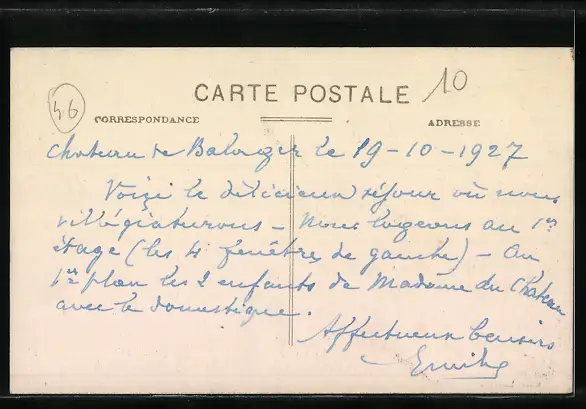 46
10
CARTE POSTALE
CORRESPONDANCE
ADRESSE
Chateau de Balager le 19-10-1927
Voici le délicieux séjour où nous
villégiaturons - Nous logeons au 1er
étage (les 4 fenêtres de gauche) - Au
1er plan les 2 enfants de Madame du Chateau
avec le domestique.
Affectueux baisers
Emile